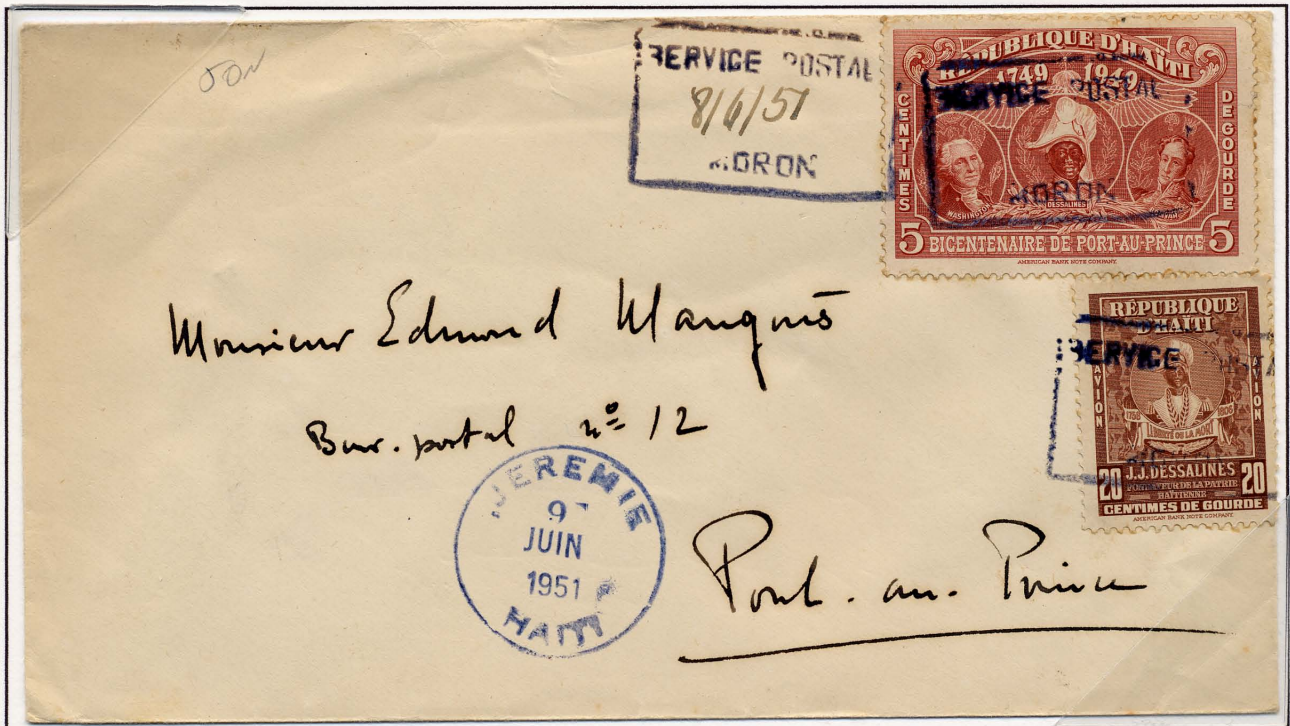 SERVICE POSTAL
8/6/51
MORON
RÉPUBLIQUE D'HAÏTI
1749 1949
SERVICE POSTAL
CENTIMES
DE GOURDE
MORON
WASHINGTON
DESSALINES
5 BICENTENAIRE DE PORT-AU-PRINCE 5
AMERICAN BANK NOTE COMPANY
RÉPUBLIQUE
D'HAITI
SERVICE
AVION
AVION
1806
LIBERTÉ OU LA MORT
20 J.J. DESSALINES 20
FONDATEUR DE LA PATRIE
HAÏTIENNE
CENTIMES DE GOURDE
AMERICAN BANK NOTE COMPANY
Monsieur Edmond Mangonès
Bur. postal nº 12
JEREMIE
9
JUIN
1951
HAITI
Port-au-Prince